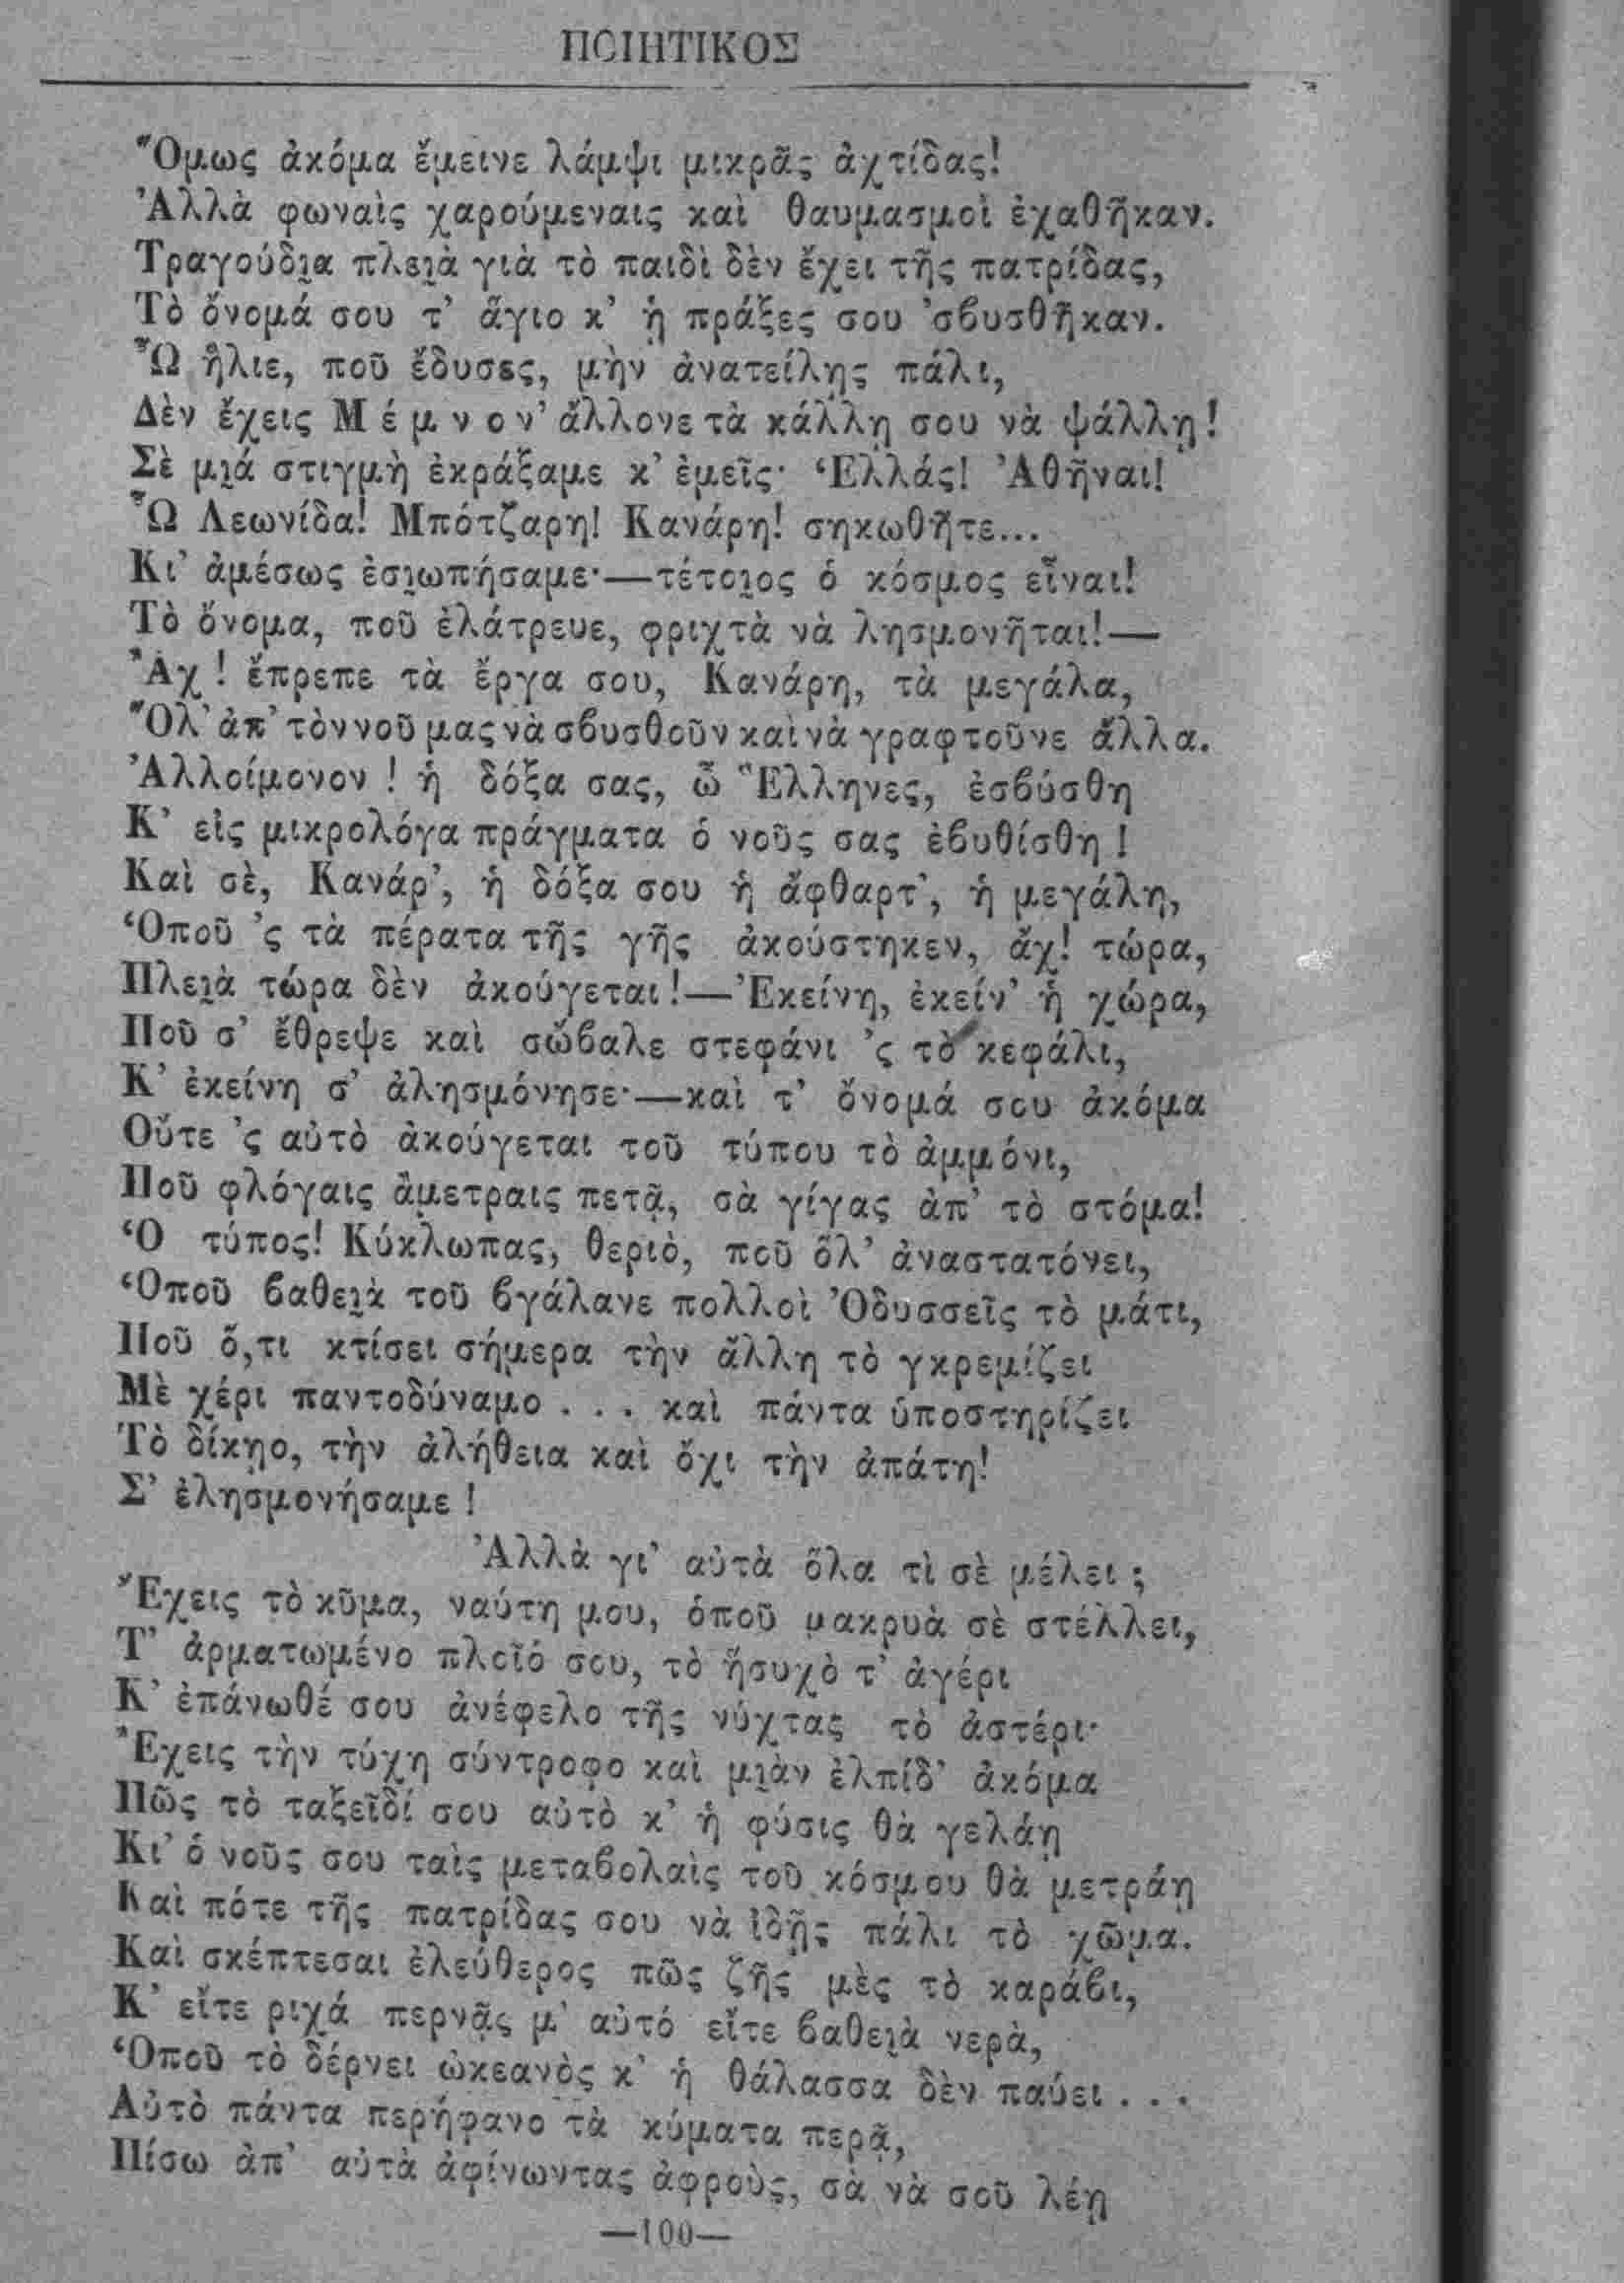 ΠΟΙΗΤΙΚΟΣ
Ὅμως ἀκόμα ἔμεινε λάμψι μικρᾶς ἀχτίδας!
Ἀλλὰ φωναὶς χαρούμεναις καὶ θαυμασμοὶ ἐχαθῆκαν.
Τραγούδι̯α πλει̯ὰ γιὰ τὸ παιδὶ δὲν ἔχει τῆς πατρίδας,
Τὸ ὄνομά σου τ' ἅγιο κ' ᾑ πράξες σου 'σβυσθῆκαν.
Ὦ ἥλιε, ποῦ ἔδυσες, μὴν ἀνατείλῃς πάλι,
Δὲν ἔχεις Μ έ μ ν ο ν' ἄλλονε τὰ κάλλη σου νὰ ψάλλῃ!
Σὲ μι̯ά στιγμὴ ἐκράξαμε κ' ἐμεῖς· Ἑλλάς! Ἀθῆναι!
Ὦ Λεωνίδα! Μπότζαρη! Κανάρη! σηκωθῆτε...
Κι' ἀμέσως ἐσι̯ωπήσαμε·—τέτοι̯ος ὁ κόσμος εἶναι!
Τὸ ὄνομα, ποῦ ἐλάτρευε, φριχτὰ νὰ λησμονῆται!—
Ἄχ ! ἔπρεπε τὰ ἔργα σου, Κανάρη, τὰ μεγάλα,
Ὅλ' ἀπ' τὸν νοῦ μας νὰ σβυσθοῦν καὶ νὰ γραφτοῦνε ἄλλα.
Ἀλλοίμονον ! ἡ δόξα σας, ὦ Ἕλληνες, ἐσβύσθη
Κ' εἰς μικρολόγα πράγματα ὁ νοῦς σας ἐβυθίσθη !
Καὶ σὲ, Κανάρ', ἡ δόξα σου ἡ ἄφθαρτ', ἡ μεγάλη,
Ὁποῦ 'ς τὰ πέρατα τῆς γῆς ἀκούστηκεν, ἄχ! τώρα,
Πλει̯ὰ τώρα δὲν ἀκούγεται!—Ἐκείνη, ἐκείν' ἡ χώρα,
Ποῦ σ' ἔθρεψε καὶ σὤβαλε στεφάνι 'ς τὸ κεφάλι,
Κ' ἐκείνη σ' ἀλησμόνησε·—καὶ τ' ὄνομά σου ἀκόμα
Οὔτε 'ς αὐτὸ ἀκούγεται τοῦ τύπου τὸ ἀμμόνι,
Ποῦ φλόγαις ἄμετραις πετᾷ, σὰ γίγας ἀπ' τὸ στόμα!
Ὁ τύπος! Κύκλωπας, θεριὸ, ποῦ ὅλ' ἀναστατόνει,
Ὁποῦ βαθει̯ὰ τοῦ βγάλανε πολλοὶ Ὀδυσσεῖς τὸ μάτι,
Ποῦ ὅ,τι κτίσει σήμερα τὴν ἄλλη τὸ γκρεμίζει
Μὲ χέρι παντοδύναμο . . . καὶ πάντα ὑποστηρίζει
Τὸ δίκῃο, τὴν ἀλήθεια καὶ ὄχι τὴν ἀπάτη!
Σ' ἐλησμονήσαμε !
Ἀλλὰ γι' αὐτὰ ὅλα τὶ σὲ μέλει ;
Ἔχεις τὸ κῦμα, ναύτη μου, ὁποῦ μακρυὰ σὲ στέλλει,
Τ' ἀρματωμένο πλοῖό σου, τὸ ἥσυχὸ τ' ἀγέρι
Κ' ἐπάνωθέ σου ἀνέφελο τῆς νύχτας τὸ ἀστέρι·
Ἔχεις τὴν τύχη σύντροφο καὶ μι̯ὰν ἐλπίδ' ἀκόμα
Πῶς τὸ ταξεῖδί σου αὐτὸ κ' ἡ φύσις θὰ γελάῃ
Κι' ὁ νοῦς σου ταὶς μεταβολαὶς τοῦ κόσμου θὰ μετράῃ
Καὶ πότε τῆς πατρίδας σου νὰ ἰδῇς πάλι τὸ χῶμα.
Καὶ σκέπτεσαι ἐλεύθερος πῶς ζῇς μὲς τὸ καράβι,
Κ' εἴτε ριχά περνᾷς μ' αὐτό εἴτε βαθει̯ὰ νερὰ,
Ὁποῦ τὸ δέρνει ὠκεανὸς κ' ἡ θάλασσα δὲν παύει . . .
Αὐτὸ πάντα περήφανο τὰ κύματα περᾷ,
Πίσω ἀπ' αὐτὰ ἀφίνωντας ἀφροὺς, σὰ νὰ σοῦ λέῃ
—100—